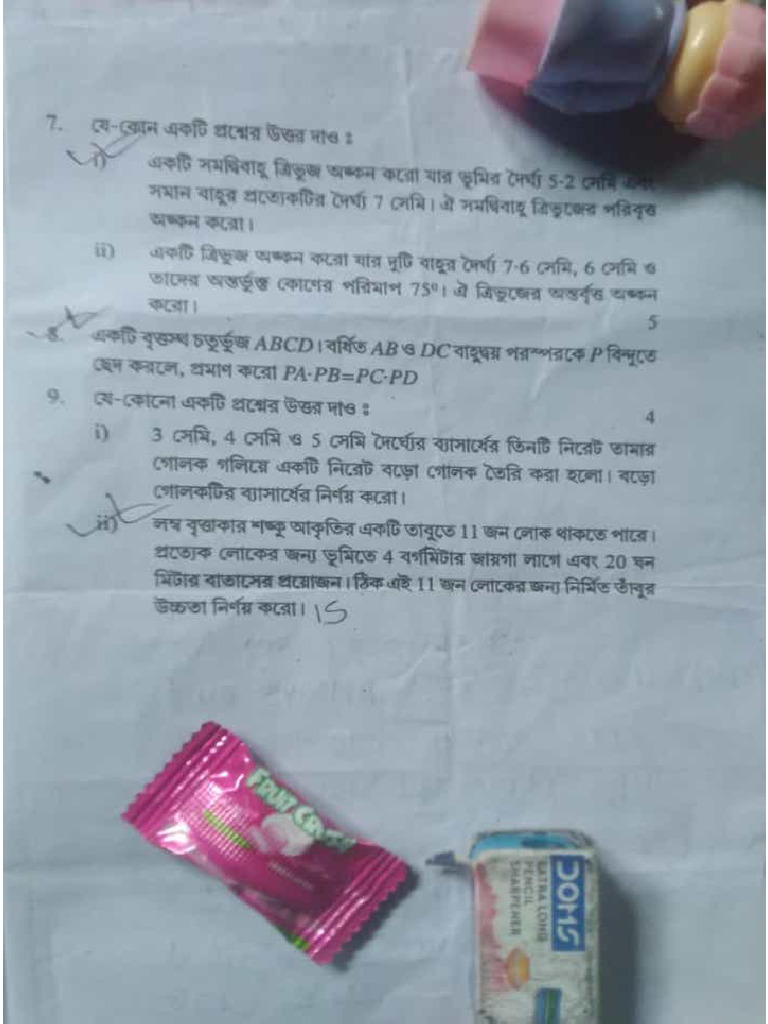 7. যে-কোন একটি প্রশ্নের উত্তর দাও :
i) একটি সমদ্বিবাহু ত্রিভুজ অঙ্কন করো যার ভূমির দৈর্ঘ্য 5·2 সেমি এবং
সমান বাহুর প্রত্যেকটির দৈর্ঘ্য 7 সেমি। ঐ সমদ্বিবাহু ত্রিভুজের পরিবৃত্ত
অঙ্কন করো।
ii) একটি ত্রিভুজ অঙ্কন করো যার দুটি বাহুর দৈর্ঘ্য 7·6 সেমি, 6 সেমি ও
তাদের অন্তর্ভুক্ত কোণের পরিমাপ 75°। ঐ ত্রিভুজের অন্তর্বৃত্ত অঙ্কন
করো।
5
8. একটি বৃত্তস্থ চতুর্ভূজ ABCD। বর্ধিত AB ও DC বাহুদ্বয় পরস্পরকে P বিন্দুতে
ছেদ করলে, প্রমাণ করো PA·PB=PC·PD
9. যে-কোনো একটি প্রশ্নের উত্তর দাও :
4
i) 3 সেমি, 4 সেমি ও 5 সেমি দৈর্ঘ্যের ব্যাসার্ধের তিনটি নিরেট তামার
গোলক গলিয়ে একটি নিরেট বড়ো গোলক তৈরি করা হলো। বড়ো
গোলকটির ব্যাসার্ধের নির্ণয় করো।
ii) লম্ব বৃত্তাকার শঙ্কু আকৃতির একটি তাবুতে 11 জন লোক থাকতে পারে।
প্রত্যেক লোকের জন্য ভূমিতে 4 বর্গমিটার জায়গা লাগে এবং 20 ঘন
মিটার বাতাসের প্রয়োজন। ঠিক এই 11 জন লোকের জন্য নির্মিত তাঁবুর
উচ্চতা নির্ণয় করো। 15
FRUIT
DOMS
XTRA LONG
PENCIL
SHARPENER